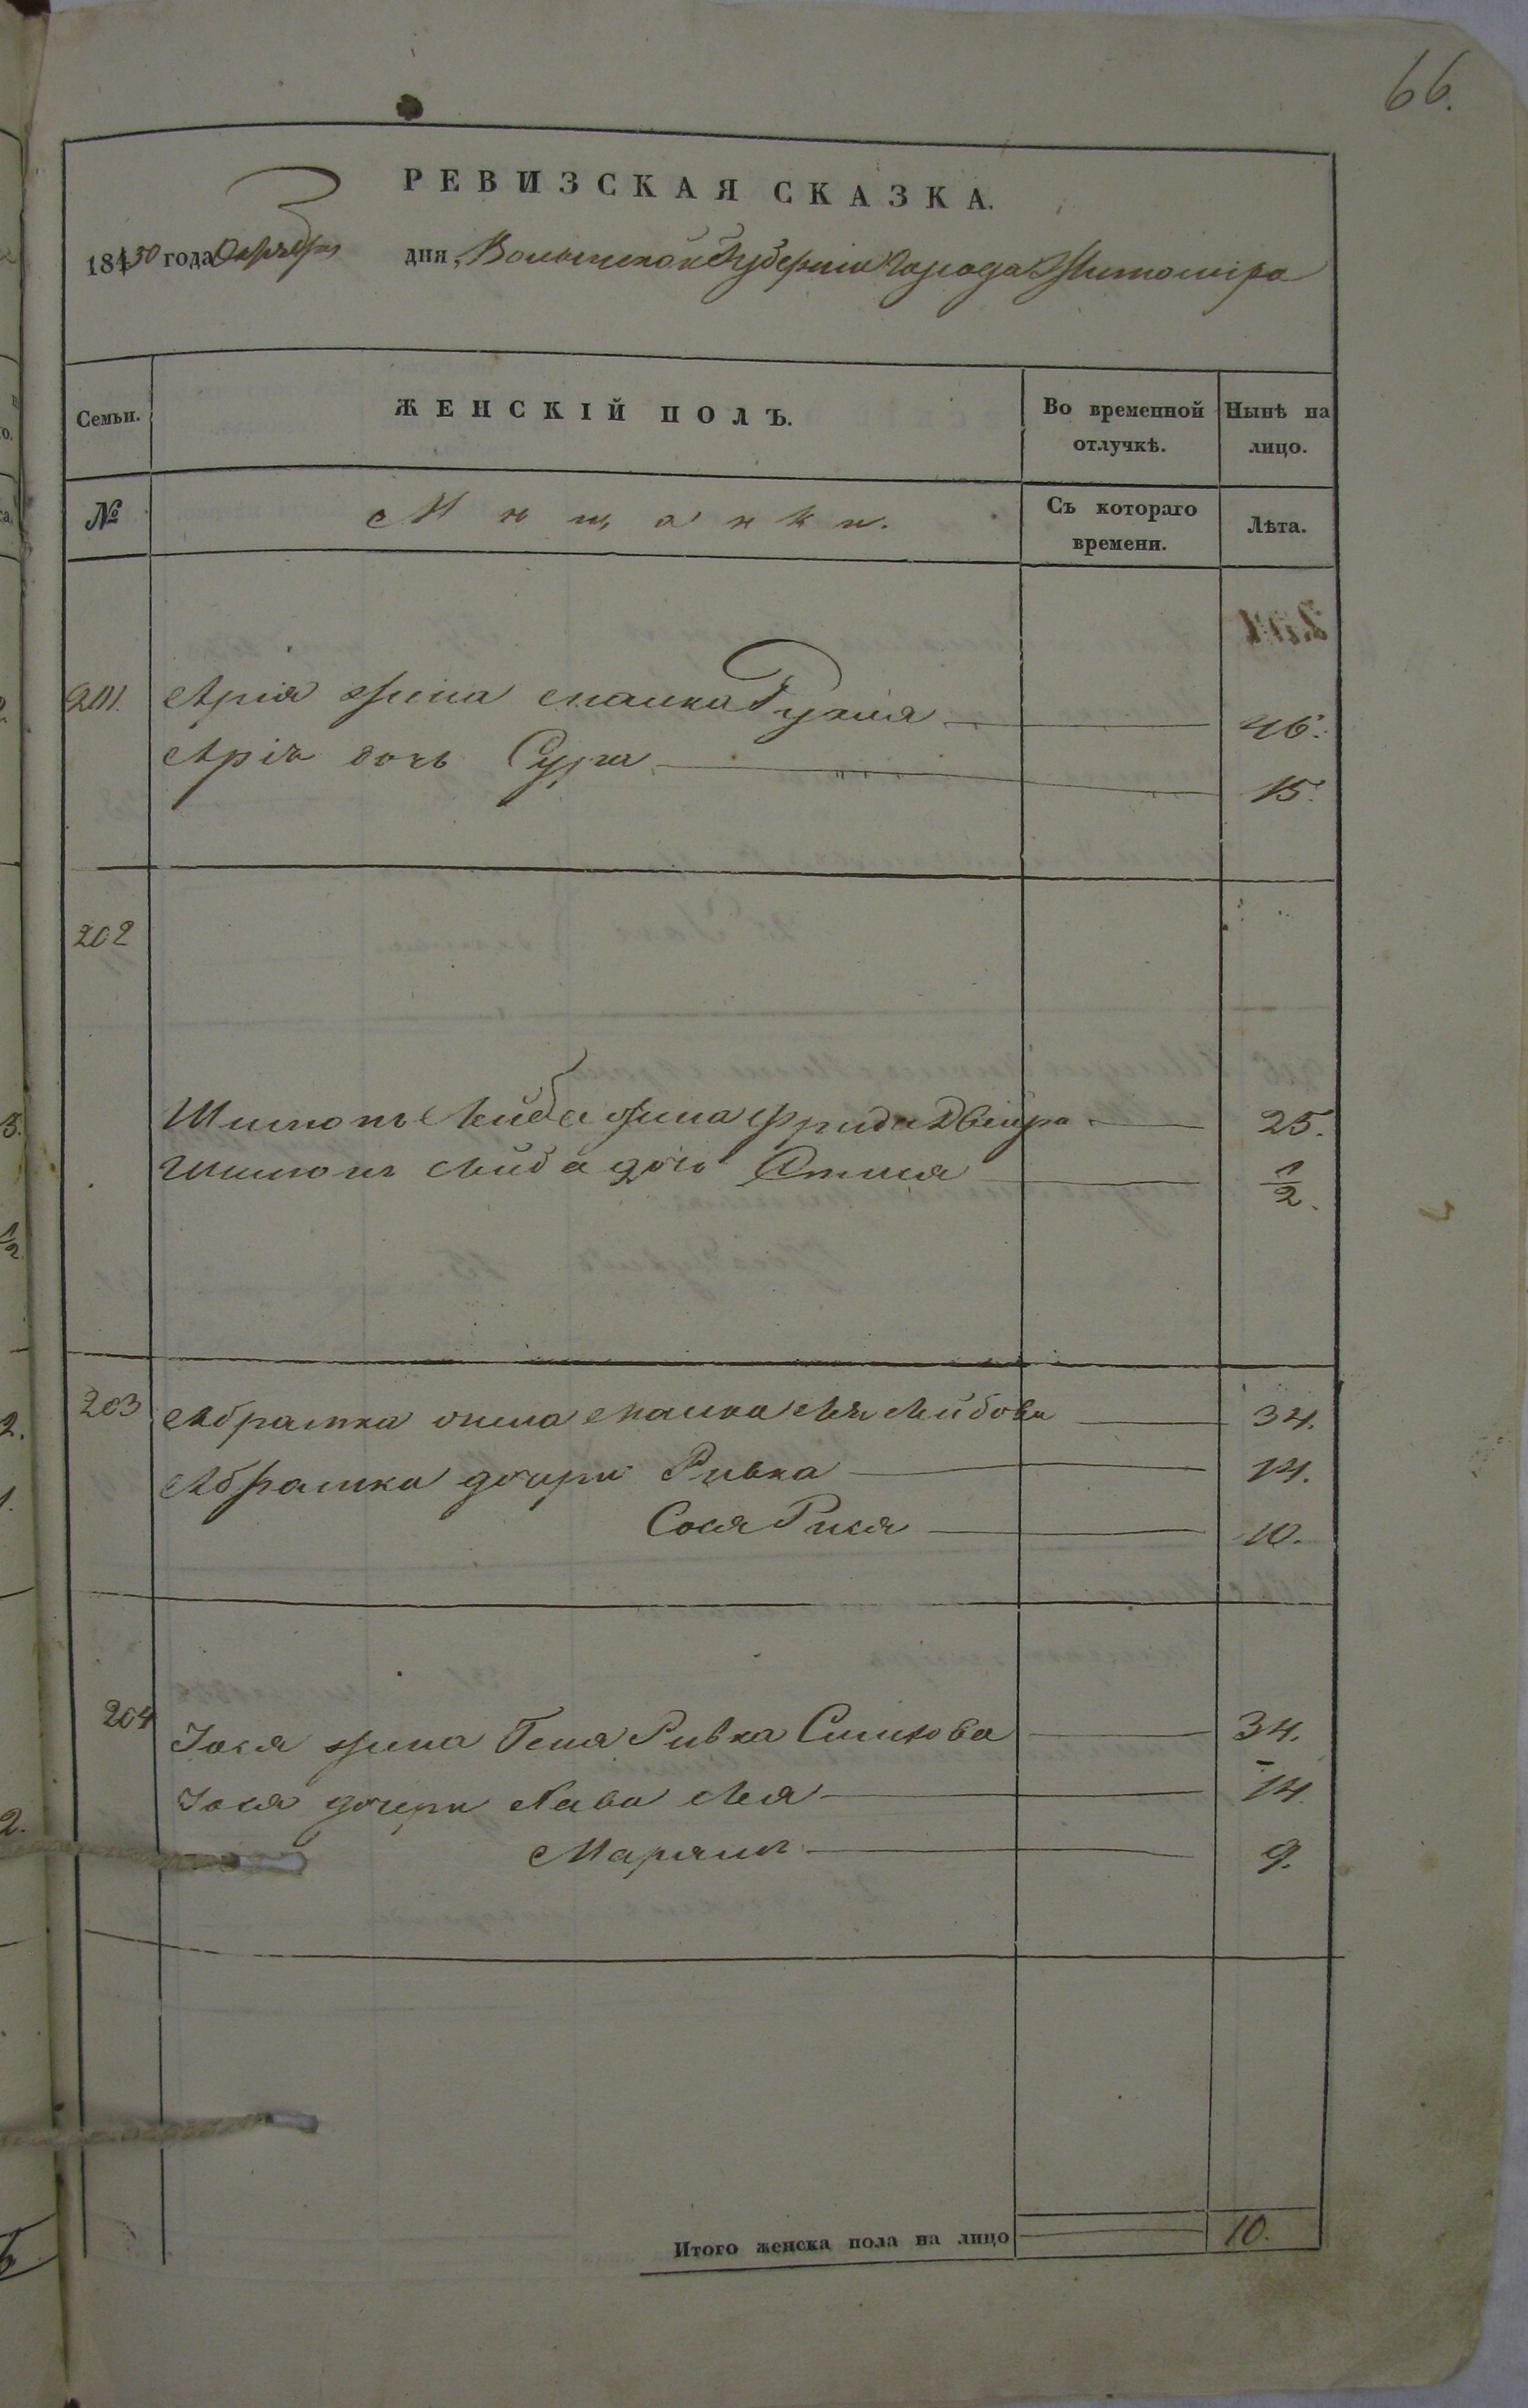 66.
РЕВИЗСКАЯ СКАЗКА.
1850 года Октября дня, Волынской Губерніи Города Житоміра
Семьи.
ЖЕНСКІЙ ПОЛЪ.
Во временной отлучкѣ.
Нынѣ на лицо.
№
Мѣщанки.
Съ котораго времени.
Лѣта.
201. Арія жена Малка Рухля 46.
Арія дочь Сура 15.
202
Шимонъ Лейба жена Фрида Двейра 25.
Шимонъ Лейба дочь 1/2.
203 Абрамка жена Малка Лея Лейбова 34.
Абрамка дочери Ривка 14.
Сося Рися 10.
204 Іося жена Геня Ривка 34.
Іося дочери Хава Лея 14.
Марьямъ 9.
Итого женска пола на лицо 10.